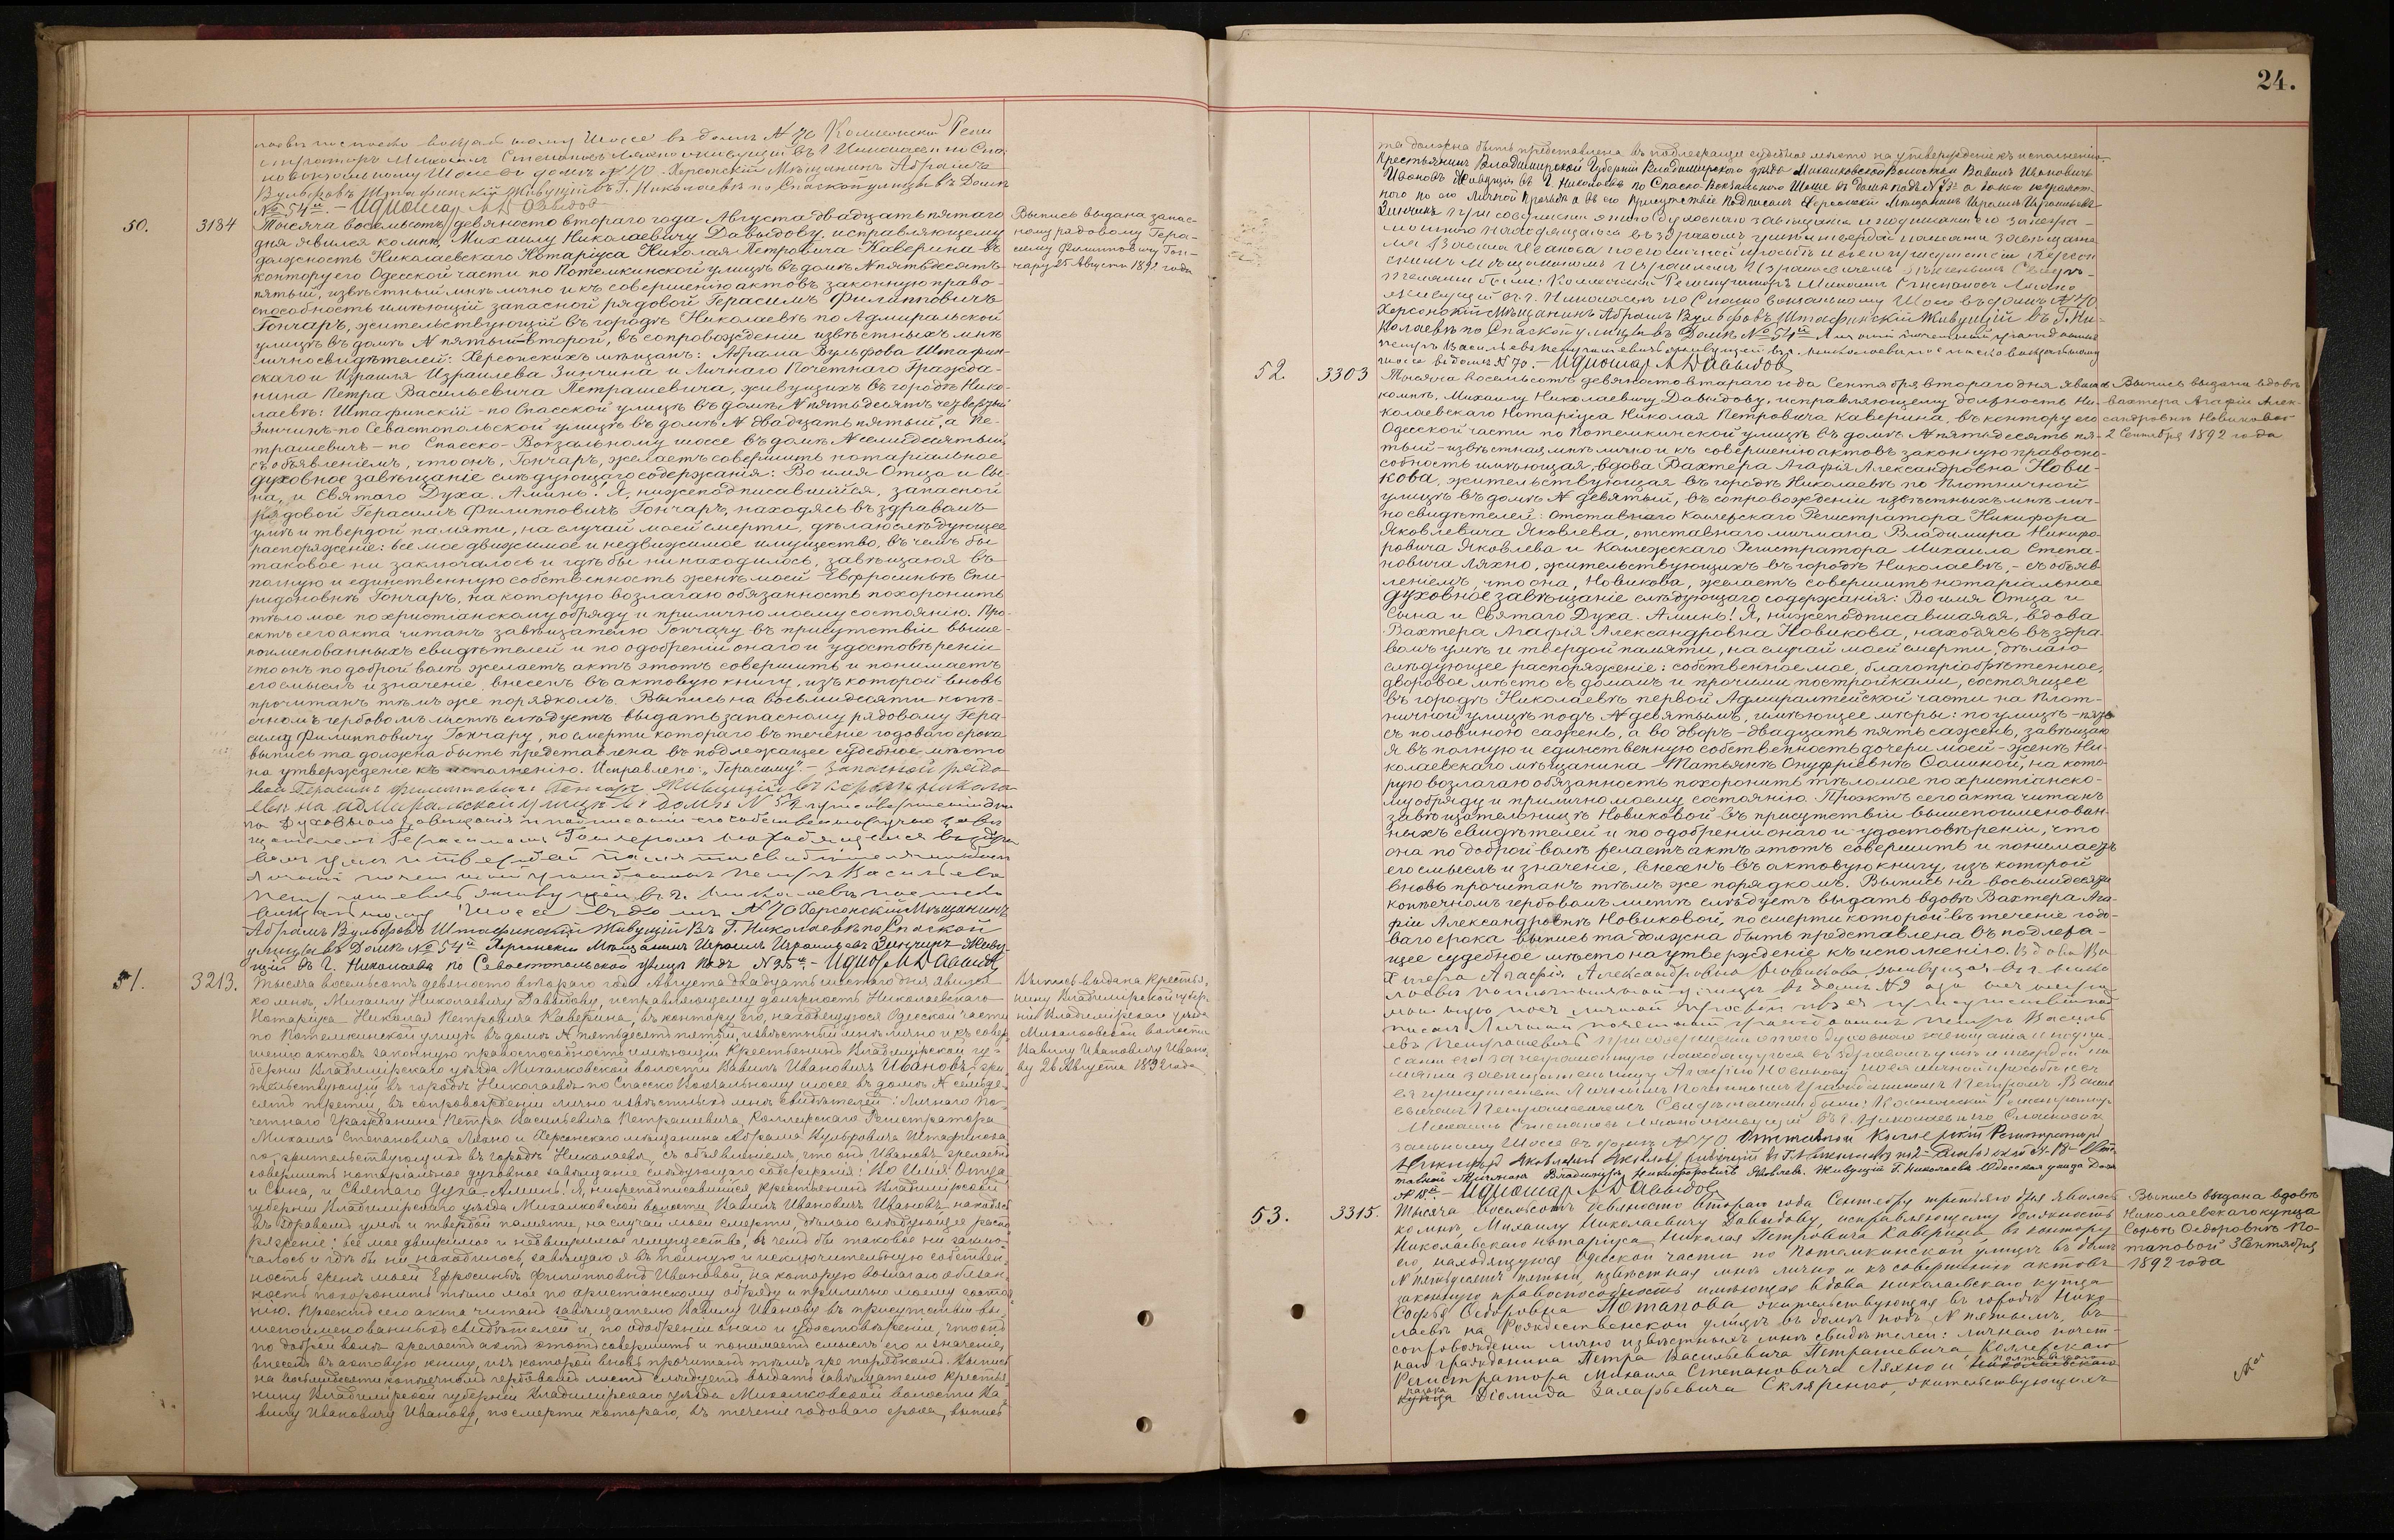 24.
шоссе въ домѣ № 70 Коллежскій Реги
стратору Михаилъ Степановъ Ляхно живущій въ г. Николаевѣ по Спас
ковокзальному Шоссе въ домѣ № 70. Херсонскій Мѣщанинъ Абрамъ
Вульфовъ Штафинскій Живущій въ Г. Николаевѣ по Спаской улицѣ въ Домѣ
№ 54й. –
50. 3184
Тысяча восемьсотъ девяносто втораго года Августа двадцать пятаго
дня явился ко мнѣ, Михаилу Николаевичу Давыдову, исправляющему
должность Николаевскаго Нотаріуса Николая Петровича Каверина въ
контору его Одесской части по Потемкинской улицѣ въ домѣ № пятьдесятъ
пятый, извѣстный мнѣ лично и къ совершенію актовъ законную право-
способность имѣющій запасной рядовой Герасимъ Филипповичъ
Гончаръ, жительствующій въ городѣ Николаевѣ по Адмиральской
улицѣ въ домѣ № пятый-второй, въ сопровожденіи извѣстныхъ мнѣ
лично свидѣтелей: Херсонскихъ мѣщанъ: Абрама Вульфова Штафин-
скаго и Израиля Израилева Зинчина и Личнаго Почетнаго Гражда-
нина Петра Васильевича Петрашевича, живущихъ въ городѣ Нико-
лаевѣ: Штафинскій – по Спасской улицѣ въ домѣ № пятьдесятъ четвертый
Зинчинъ – по Севастопольской улицѣ въ домѣ № двадцать пятый, а Пе-
трашевичъ – по Спасско-Вокзальному шоссе въ домѣ № семидесятый,
съ объявленіемъ, что онъ, Гончаръ, желаетъ совершить нотаріальное
духовное завѣщаніе слѣдующаго содержанія: Во имя Отца и Сы-
на, и Святаго Духа. Аминь! Я, нижеподписавшійся, запасной
рядовой Герасимъ Филипповичъ Гончаръ, находясь въ здравомъ
умѣ и твердой памяти, на случай моей смерти, дѣлаю слѣдующее
распоряженіе: все мое движимое и недвижимое имущество, въ чемъ бы
таковое ни заключалось и гдѣ бы ни находилось, завѣщаю я въ
полную и единственную собственность женѣ моей Евфросиньѣ Спи-
ридоновнѣ Гончаръ, на которую возлагаю обязанность похоронить
тѣло мое по христіанскому обряду и прилично моему состоянію. Про-
ектъ сего акта читанъ завѣщателю Гончару въ присутствіи выше-
поименованныхъ свидѣтелей и по одобреніи онаго и удостовѣреніи
что онъ по доброй волѣ желаетъ актъ этотъ совершить и понимаетъ
его смыслъ и значеніе, внесенъ въ актовую книгу, изъ которой вновь
прочитанъ тѣмъ же порядкомъ. Выпись на восьмидесяти копѣ-
ечномъ гербовомъ листѣ слѣдуетъ выдать запасному рядовому Гера-
симу Филипповичу Гончару, по смерти котораго въ теченіе годоваго срока
выпись та должна быть представлена въ подлежащее судебное мѣсто
на утвержденіе къ исполненію. Исправлено: „Герасиму". – Запасной рядо
вой Герасимъ Филиповичъ Гончаръ Живущій въ городѣ никола
евѣ на адмиральской улицѣ въ домѣ № 52 при совершеніи
духовнаго завѣщанія и подписаніи его собственноручно завѣ
щателемъ Герасимомъ Гончаромъ находящемся въ здра
вомъ умѣ и твердой памяти свидѣтелями были
Личный почетный гражданинъ Петръ Васильевъ
Петрашевичъ живущій въ г. Николаевѣ по спаско
вокзальному Шоссе въ домѣ № 70 Херсонскій Мѣщанинъ
Абрамъ Вульфовъ Штафинскій Живущій Въ Г. Николаевѣ по Спаской
улицы въ Домѣ № 54й Херсонскій Мѣщанинъ Израиль Израилевъ Зинчинъ Живу-
щій въ Г. Николаевѣ по Севастопольской улицѣ Подъ № 25й. –
Выпись выдана запас-
ному рядовому Гера-
симу Филипповичу Гон-
чару 25 Августа 1892 года
51. 3213.
Тысяча восемьсотъ девяносто втораго года Августа двадцать шестаго дня явился
ко мнѣ, Михаилу Николаевичу Давыдову, исправляющему должность Николаевскаго
Нотаріуса Николая Петровича Каверина, въ контору его, находящуюся Одесской части
по Потемкинской улицѣ въ домѣ № пятьдесятъ пятый, извѣстный мнѣ лично и къ совер-
шенію актовъ законную правоспособность имѣющій Крестьянинъ Владимірской гу-
берніи Владимірскаго уѣзда Михалковской волости Вавилъ Ивановичъ Ивановъ, жи-
тельствующій въ городѣ Николаевѣ по Спасско Вокзальному шоссе въ домѣ № семьде-
сятъ третій, въ сопровожденіи лично извѣстныхъ мнѣ свидѣтелей: Личнаго По-
четнаго Гражданина Петра Васильевича Петрашевича, Коллежскаго Регистратора
Михаила Степановича Ляхно и Херсонскаго мѣщанина Абрама Вульфовича Штафинска-
го, жительствующихъ въ городѣ Николаевѣ, съ объявленіемъ, что онъ Ивановъ желаетъ
совершить нотаріальное духовное завѣщаніе слѣдующаго содержанія: Во Имя Отца
и Сына, и Святаго Духа. Аминь! Я, нижеподписавшійся Крестьянинъ Владимірской
губерніи Владимірскаго уѣзда Михалковской волости, Вавилъ Ивановичъ Ивановъ, находясь
въ здравомъ умѣ и твердой памяти, на случай моей смерти, дѣлаю слѣдующее распо
ряженіе: все мое движимое и недвижимое имущество, въ чемъ бы таковое ни заклю-
чалось и гдѣ бы ни находилось, завѣщаю я въ полную и исключительную собствен-
ность женѣ моей Ефросиньѣ Филипповнѣ Ивановой, на которую возлагаю обязан-
ность похоронить тѣло мое по христіанскому обряду и прилично моему состоя-
нію. Проектъ сего акта читанъ завѣщателю Вавилу Иванову въ присутствіи вы-
шепоименованныхъ свидѣтелей и, по одобреніи онаго и удостовѣреніи, что онъ
по доброй волѣ желаетъ актъ этотъ совершить и понимаетъ смыслъ его и значеніе,
внесенъ въ актовую книгу, изъ которой вновь прочитанъ тѣмъ же порядкомъ. Выпись
на восьмидесяти копѣечномъ гербовомъ листѣ слѣдуетъ выдать завѣщателю крестья-
нину Владимірской губерніи Владимірскаго уѣзда Михалковской волости Ва-
вилу Ивановичу Иванову, по смерти котораго, въ теченіе годоваго срока, выпись
Выпись выдана Крестья-
нину Владимірской губер-
ніи Владимірскаго уѣзда
Михалковской волости
Вавилу Ивановичу Ивано-
ву 26 Августа 1892 года
та должна быть представлена въ подлежащее судебное мѣсто на утвержденіе къ исполненію.
Крестьянинъ Владимирской Губерніи Владимирскаго уѣзда Михалковской Волости Вавилъ Ивановичъ
Ивановъ Живущій въ Г. Николаевѣ по Спаско Вокзального Шоссе въ домѣ подъ № 73 а за него неграмот-
ного по его Личной Прозьбѣ а въ его Присутствіе Подписалъ Херсонскій Мѣщанинъ Израиль Израилевъ
Зинчинъ при совершеніи этого духовнаго завѣщанія и подписаніи его за негра-
мотнаго находящагося въ здравомъ умѣ и твердой памяти завѣщате
ля Вавила Иванова по его личной просьбѣ и въ его присутствіи Херсон
скимъ Мѣщаниномъ Израилемъ Израилевичемъ Зинчинымъ Свидѣ-
телями были: Коллежскій Регистраторъ Михаилъ Степановъ Ляхно
живущій въ г. Николаевѣ по Спаско вокзальному Шоссе въ домѣ № 70
Херсонскій Мѣщанинъ Абрамъ Вульфовъ Штафинскій Живущій въ Г. Ни-
колаевѣ по Спаской улицы въ Домѣ № 54й Личный почетный гражданинъ
Петръ Васильевъ Петрашевичъ живущій въ г. Николаевѣ по спаско вокзальному
шоссе въ домѣ № 70. –
52. 3303
Тысяча восемьсотъ девяносто втораго года Сентября втораго дня явилась
ко мнѣ, Михаилу Николаевичу Давыдову, исправляющему должность Ни-
колаевскаго Нотаріуса Николая Петровича Каверина, въ контору его
Одесской части по Потемкинской улицѣ въ домѣ № пятьдесятъ пя-
тый – извѣстная мнѣ лично и къ совершенію актовъ законную правоспо-
собность имѣющая, вдова Вахтера Агафія Александровна Нови-
кова, жительствующая въ городѣ Николаевѣ по Плотничной
улицѣ въ домѣ № девятый, въ сопровожденіи извѣстныхъ мнѣ лич-
но свидѣтелей: отставнаго Коллежскаго Регистратора Никифора
Яковлевича Яковлева, отставнаго мичмана Владимира Никифо-
ровича Яковлева и Коллежскаго Регистратора Михаила Степа-
новича Ляхно, жительствующихъ въ городѣ Николаевѣ, – съ объяв
леніемъ, что она, Новикова, желаетъ совершить нотаріальное
духовное завѣщаніе слѣдующаго содержанія: Во имя Отца и
Сына и Святаго Духа. Аминь! Я, нижеподписавшаяся, вдова
Вахтера Агафія Александровна Новикова, находясь въ здра-
вомъ умѣ и твердой памяти, на случай моей смерти, дѣлаю
слѣдующее распоряженіе: собственное мое, благопріобрѣтенное,
дворовое мѣсто съ домомъ и прочими постройками, состоящее
въ городѣ Николаевѣ первой Адмиралтейской части на Плот-
ничной улицѣ подъ № девятымъ, имѣющее мѣры: по улицѣ – пять
съ половиною сажень, а во дворъ – двадцать пять сажень, завѣщаю
я въ полную и единственную собственность дочери моей – женѣ Ни-
колаевскаго мѣщанина Татьянѣ Онуфріевнѣ Ооминой, на кото-
рую возлагаю обязанность похоронить тѣло мое по христіанско-
му обряду и прилично моему состоянію. Проэктъ сего акта читанъ
завѣщательницѣ Новиковой въ присутствіи вышепоименован-
ныхъ свидѣтелей и по одобреніи онаго и удостовѣреніи, что
она по доброй волѣ желаетъ актъ этотъ совершить и понимаетъ
его смыслъ и значеніе, внесенъ въ актовую книгу, изъ которой
вновь прочитанъ тѣмъ же порядкомъ. Выпись на восьмидесяти
копѣечномъ гербовомъ листѣ слѣдуетъ выдать вдовѣ Вахтера Ага-
фіи Александровнѣ Новиковой, по смерти которой въ теченіе годо-
ваго срока выпись та должна быть представлена въ подлежа-
щее судебное мѣсто на утвержденіе къ исполненію. Вдова Ва
хтера Агафія Александровна Новикова, живущая въ г. Нико
лаевѣ по плотничной улицѣ въ домѣ № 9 а за нее неграмо
тную по ея личной просьбѣ и въ ея присутствіи под
писалъ Личный почетный гражданинъ Петръ Василь
евъ Петрашевичъ при совершеніи этого духовнаго завѣщанія и подпи-
саніи его за неграмотную находящуюся въ здравомъ умѣ и твердой па
мяти завѣщательницу Агафію Новикову по ея личной просьбѣ и въ
ея присутствіи Личнымъ Почетнымъ Гражданиномъ Петромъ Василь
евичемъ Петрашевичемъ Свидѣтелями были: Коллежскій Регистраторъ
Михаилъ Степановъ Ляхно живущій въ г. Николаевѣ по Спасковок
зальному Шоссе въ домѣ № 70 Отставной Коллежскій Регистраторъ
Никифоръ Яковлевичъ Яковлевъ живущій въ Г. Николаевѣ Отс-
тавной Мичманъ Владимиръ Никифоровичъ Яковлевъ. Живущій Г. Николаевъ Одесская улица Домъ
№ 18й. –
Выпись выдана вдовѣ
вахтера Агафіи Алек-
сандровнѣ Новиковой
2 Сентября 1892 года
53. 3315.
Тысяча восемьсотъ девяносто втораго года Сентября третьяго дня явилась
ко мнѣ, Михаилу Николаевичу Давыдову, исправляющему должность
Николаевскаго нотаріуса Николая Петровича Каверина, въ контору
его, находящуюся Одесской части по Потемкинской улицѣ въ домѣ
№ пятьдесятъ пятый, извѣстная мнѣ лично и къ совершенію актовъ
законную правоспособность имѣющая вдова николаевскаго купца
Софья Ѳедоровна Потапова жительствующая въ городѣ Нико-
лаевѣ на Рождественской улицѣ въ домѣ подъ № пятымъ, въ
сопровожденіи лично извѣстныхъ мнѣ свидѣтелей: личнаго почет-
наго гражданина Петра Васильевича Петрашевича, Коллежскаго
Регистратора Михаила Степановича Ляхно и Николаевскаго
купца Діомида Захарьевича Скляренко, жительствующихъ
Выпись выдана вдовѣ
Николаевскаго купца
Софьѣ Ѳедоровнѣ По-
таповой 3 Сентября
1892 года